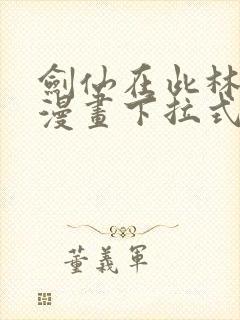 劍仙在此林
漫畫下拉式
董義軍